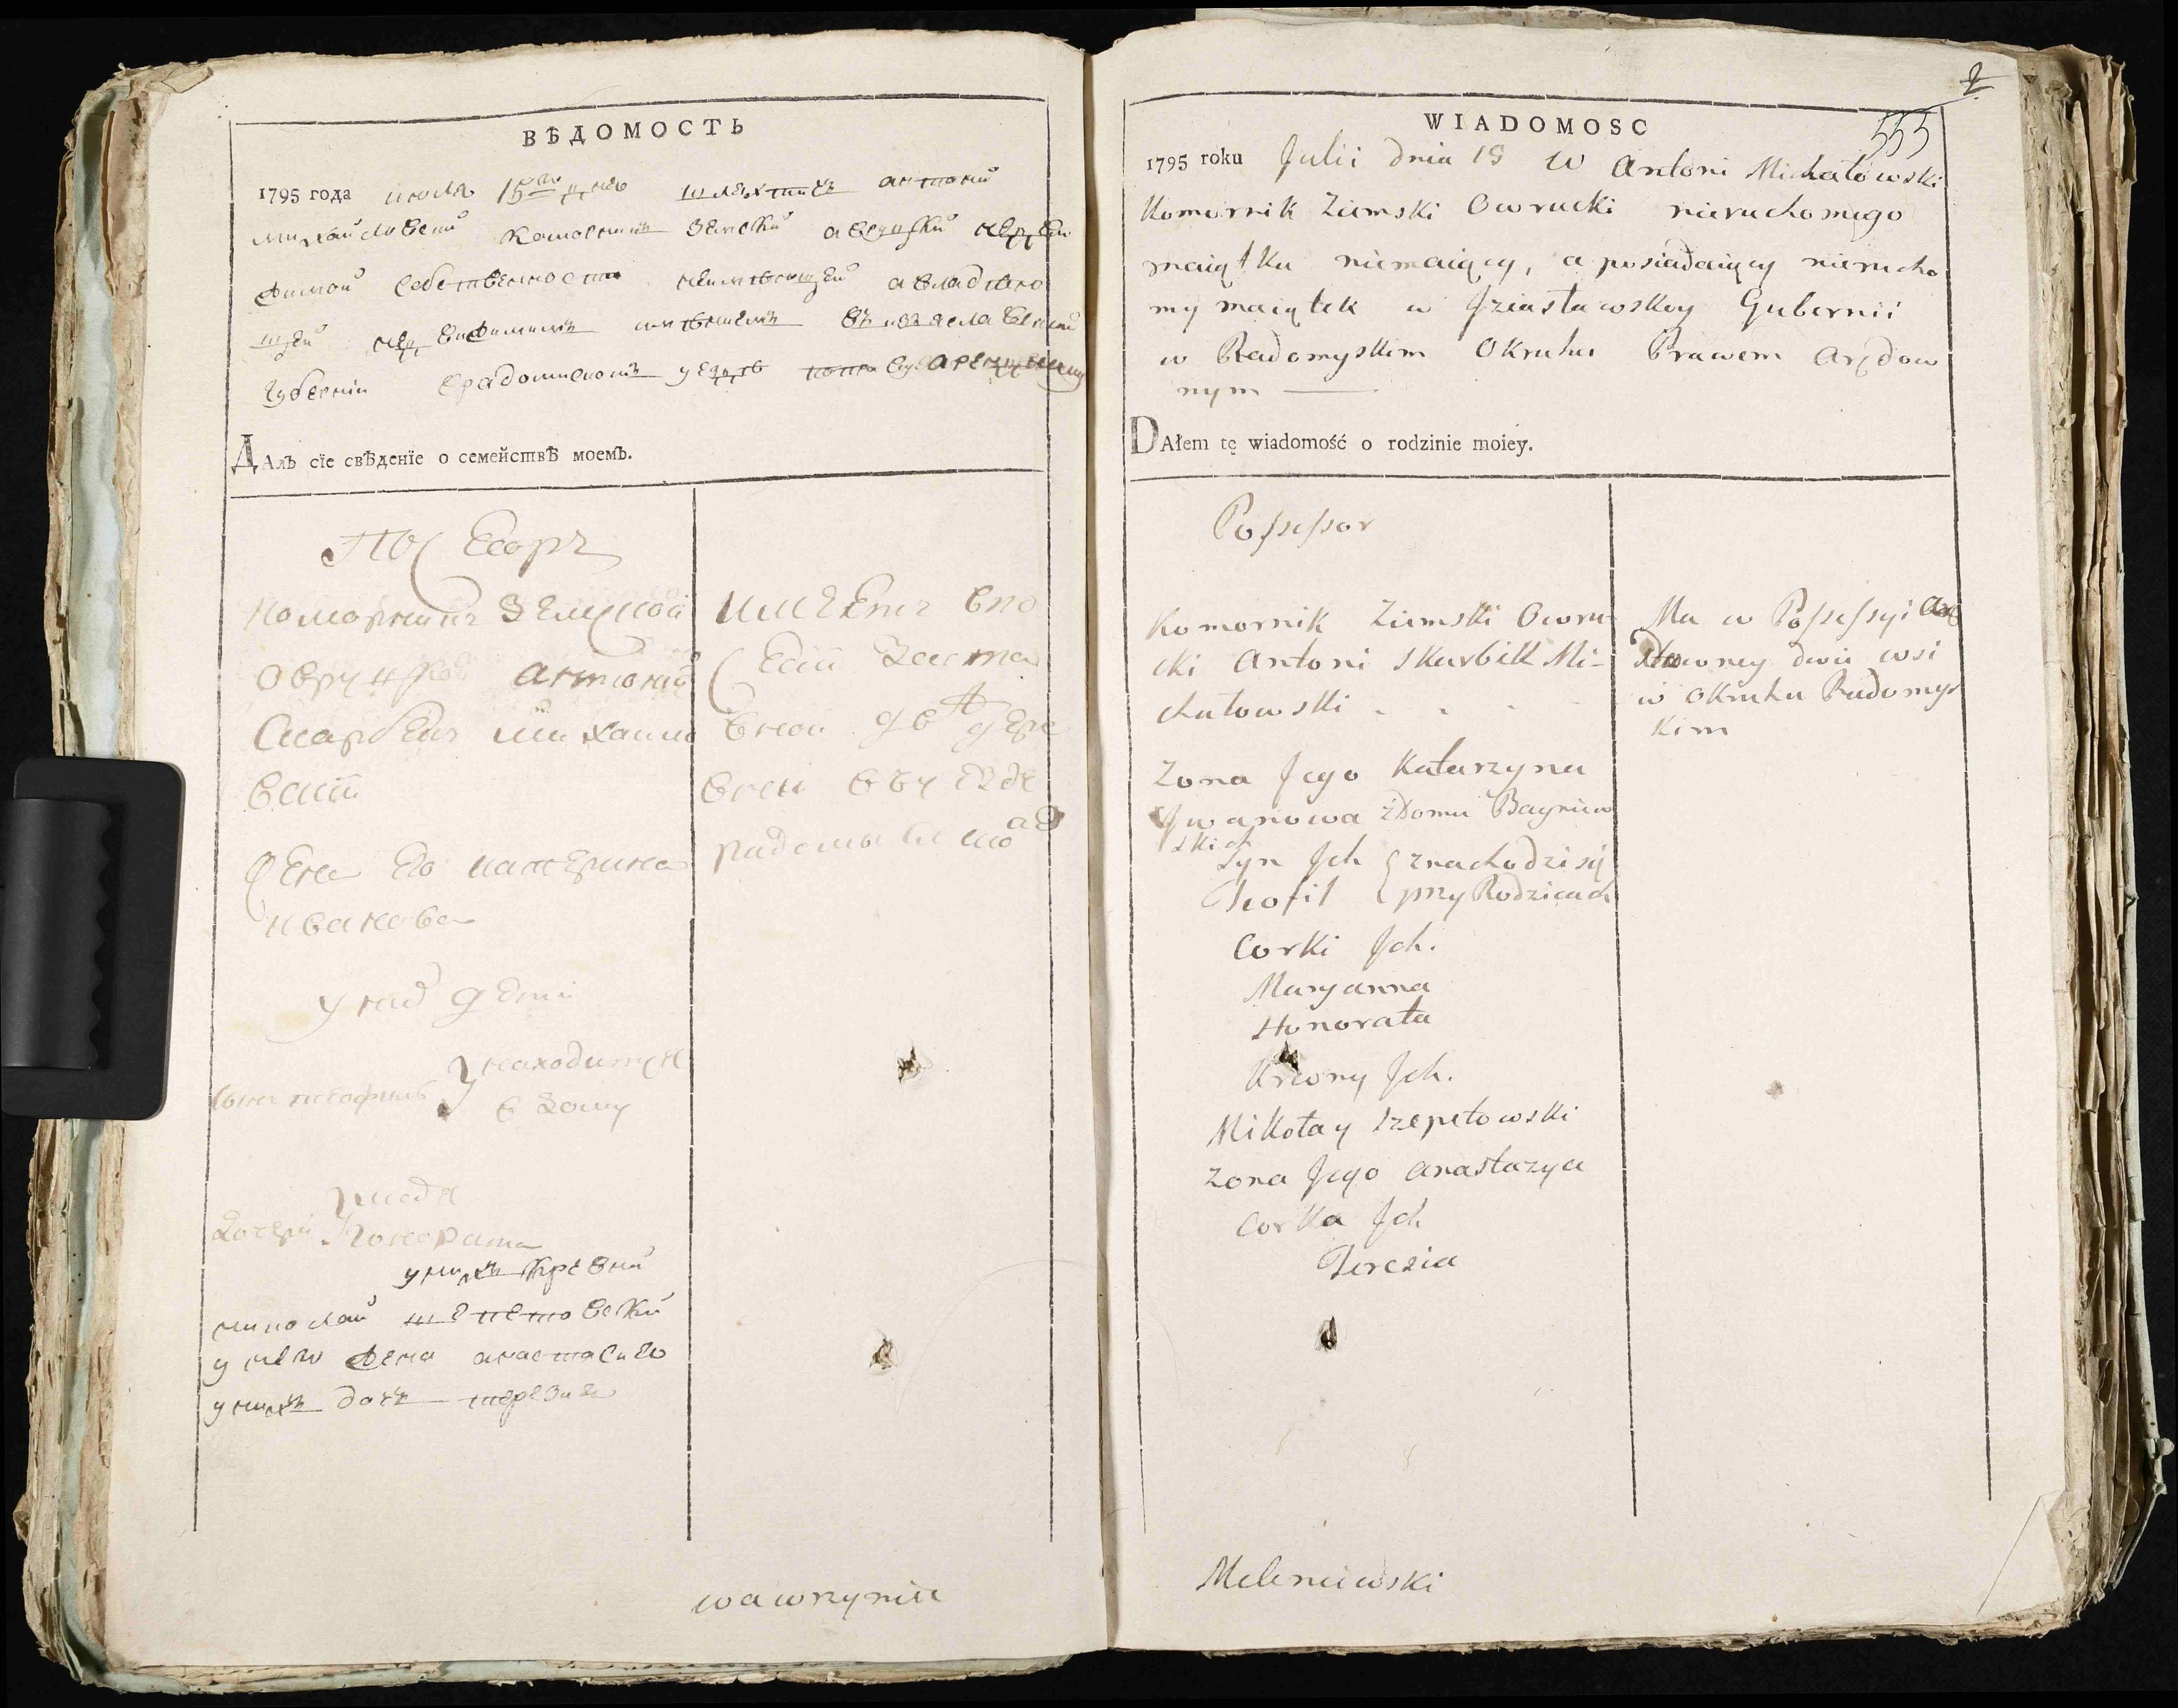 ВѢДОМОСТЬ
1795 года июля 15го дня шляхтичь антоний
михайловский коморникъ земский овруцкий недви
жимой собственности неимѣющей авладѣю
щей недвижимимъ имѣниемъ въ изяславской
губерніи врадомиском уездѣ
ДАлъ сїе свѣденїе о семействѣ моемъ.
Посесоръ
коморникъ земской
овруцкой антоний
скарбекъ михайло
вский
жена его катерина
иванова
у них дети
сынъ теофиль } находится
в дому
дочери гонората
у нихъ кревни
николай шепетовски
у него жена анастасия
у нихъ дочь терезия
имеетъ впо
сесии заста
вной две дере
вни въ уезде
радомыскомъ
wawrzynie
2
555
WIADOMOSC
1795 roku Julii dnia 15 W Antoni Michałowski
Komornik Ziemski Owrucki nieruchomego
maiątku niemaiący, a posiadaiący nierucho
my maiątek w Jziasławskoy Gubernii
w Radomyskim Okruhu Prawem Arędow
nym
DAłem tę wiadomość o rodzinie moiey.
Possessor
Komornik Ziemski Owru-
cki Antoni Skarbek Mi-
chałowski . . . .
Zona Jego Katarzyna
Jwanowa z Domu Bayniew
skich
Syn Jch { znachodzi się
Teofil { przy Rodzicach
Corki Jch.
Maryanna
Honorata
Krewny Jch.
Mikołay Szepetowski
Zona Jego Anastazya
Corka Jch
Terezia
Ma w Possessyi Arę
downey dwie wsi
w Okruhu Radomys
kim
Meleniewski